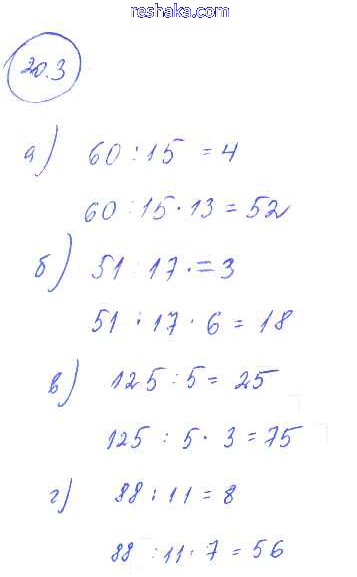 reshaka.com
20.3
а) 60 : 15 = 4
60 : 15 · 13 = 52
б) 51 : 17 · = 3
51 : 17 · 6 = 18
в) 125 : 5 = 25
125 : 5 · 3 = 75
г) 88 : 11 = 8
88 : 11 · 7 = 56